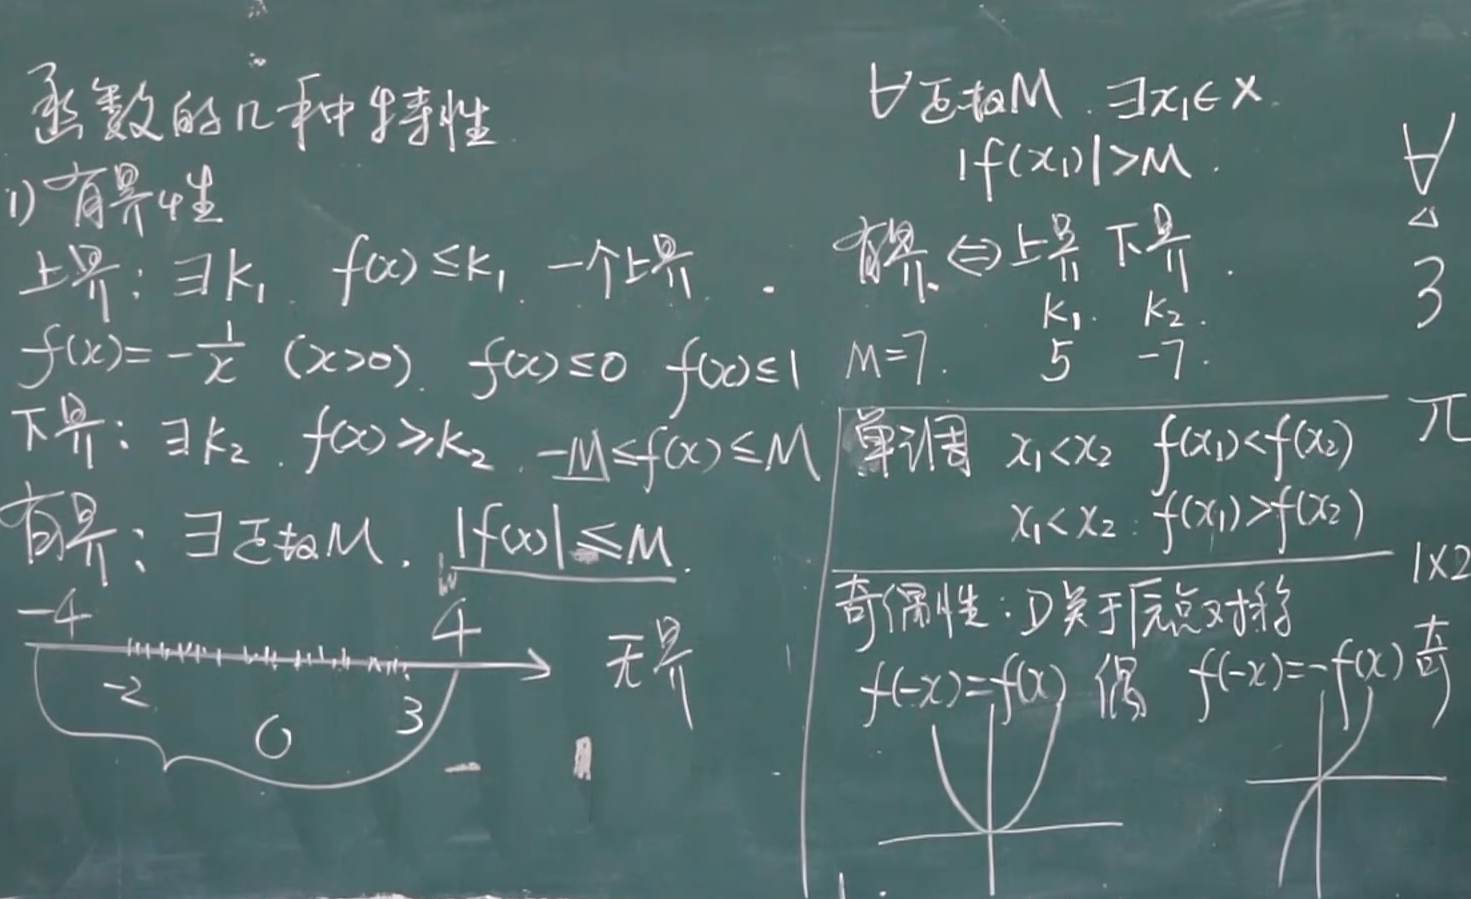 函数的几种特性
1) 有界性
上界: ∃k₁ f(x)≤k₁ 一个上界.
f(x)=-1/x (x>0). f(x)≤0 f(x)≤1
下界: ∃k₂. f(x)≥k₂. -M≤f(x)≤M
有界: ∃正数M. |f(x)|≤M.
-4 4
-2 0 3
无界
∀正数M. ∃x₁∈X
|f(x₁)|>M.
有界. ⇔ 上界 下界.
k₁. k₂.
M=7. 5 -7.
单调 x₁<x₂ f(x₁)<f(x₂)
x₁<x₂: f(x₁)>f(x₂)
奇偶性: D关于原点对称
f(-x)=f(x) 偶 f(-x)=-f(x) 奇
∀
∃
π
1×2